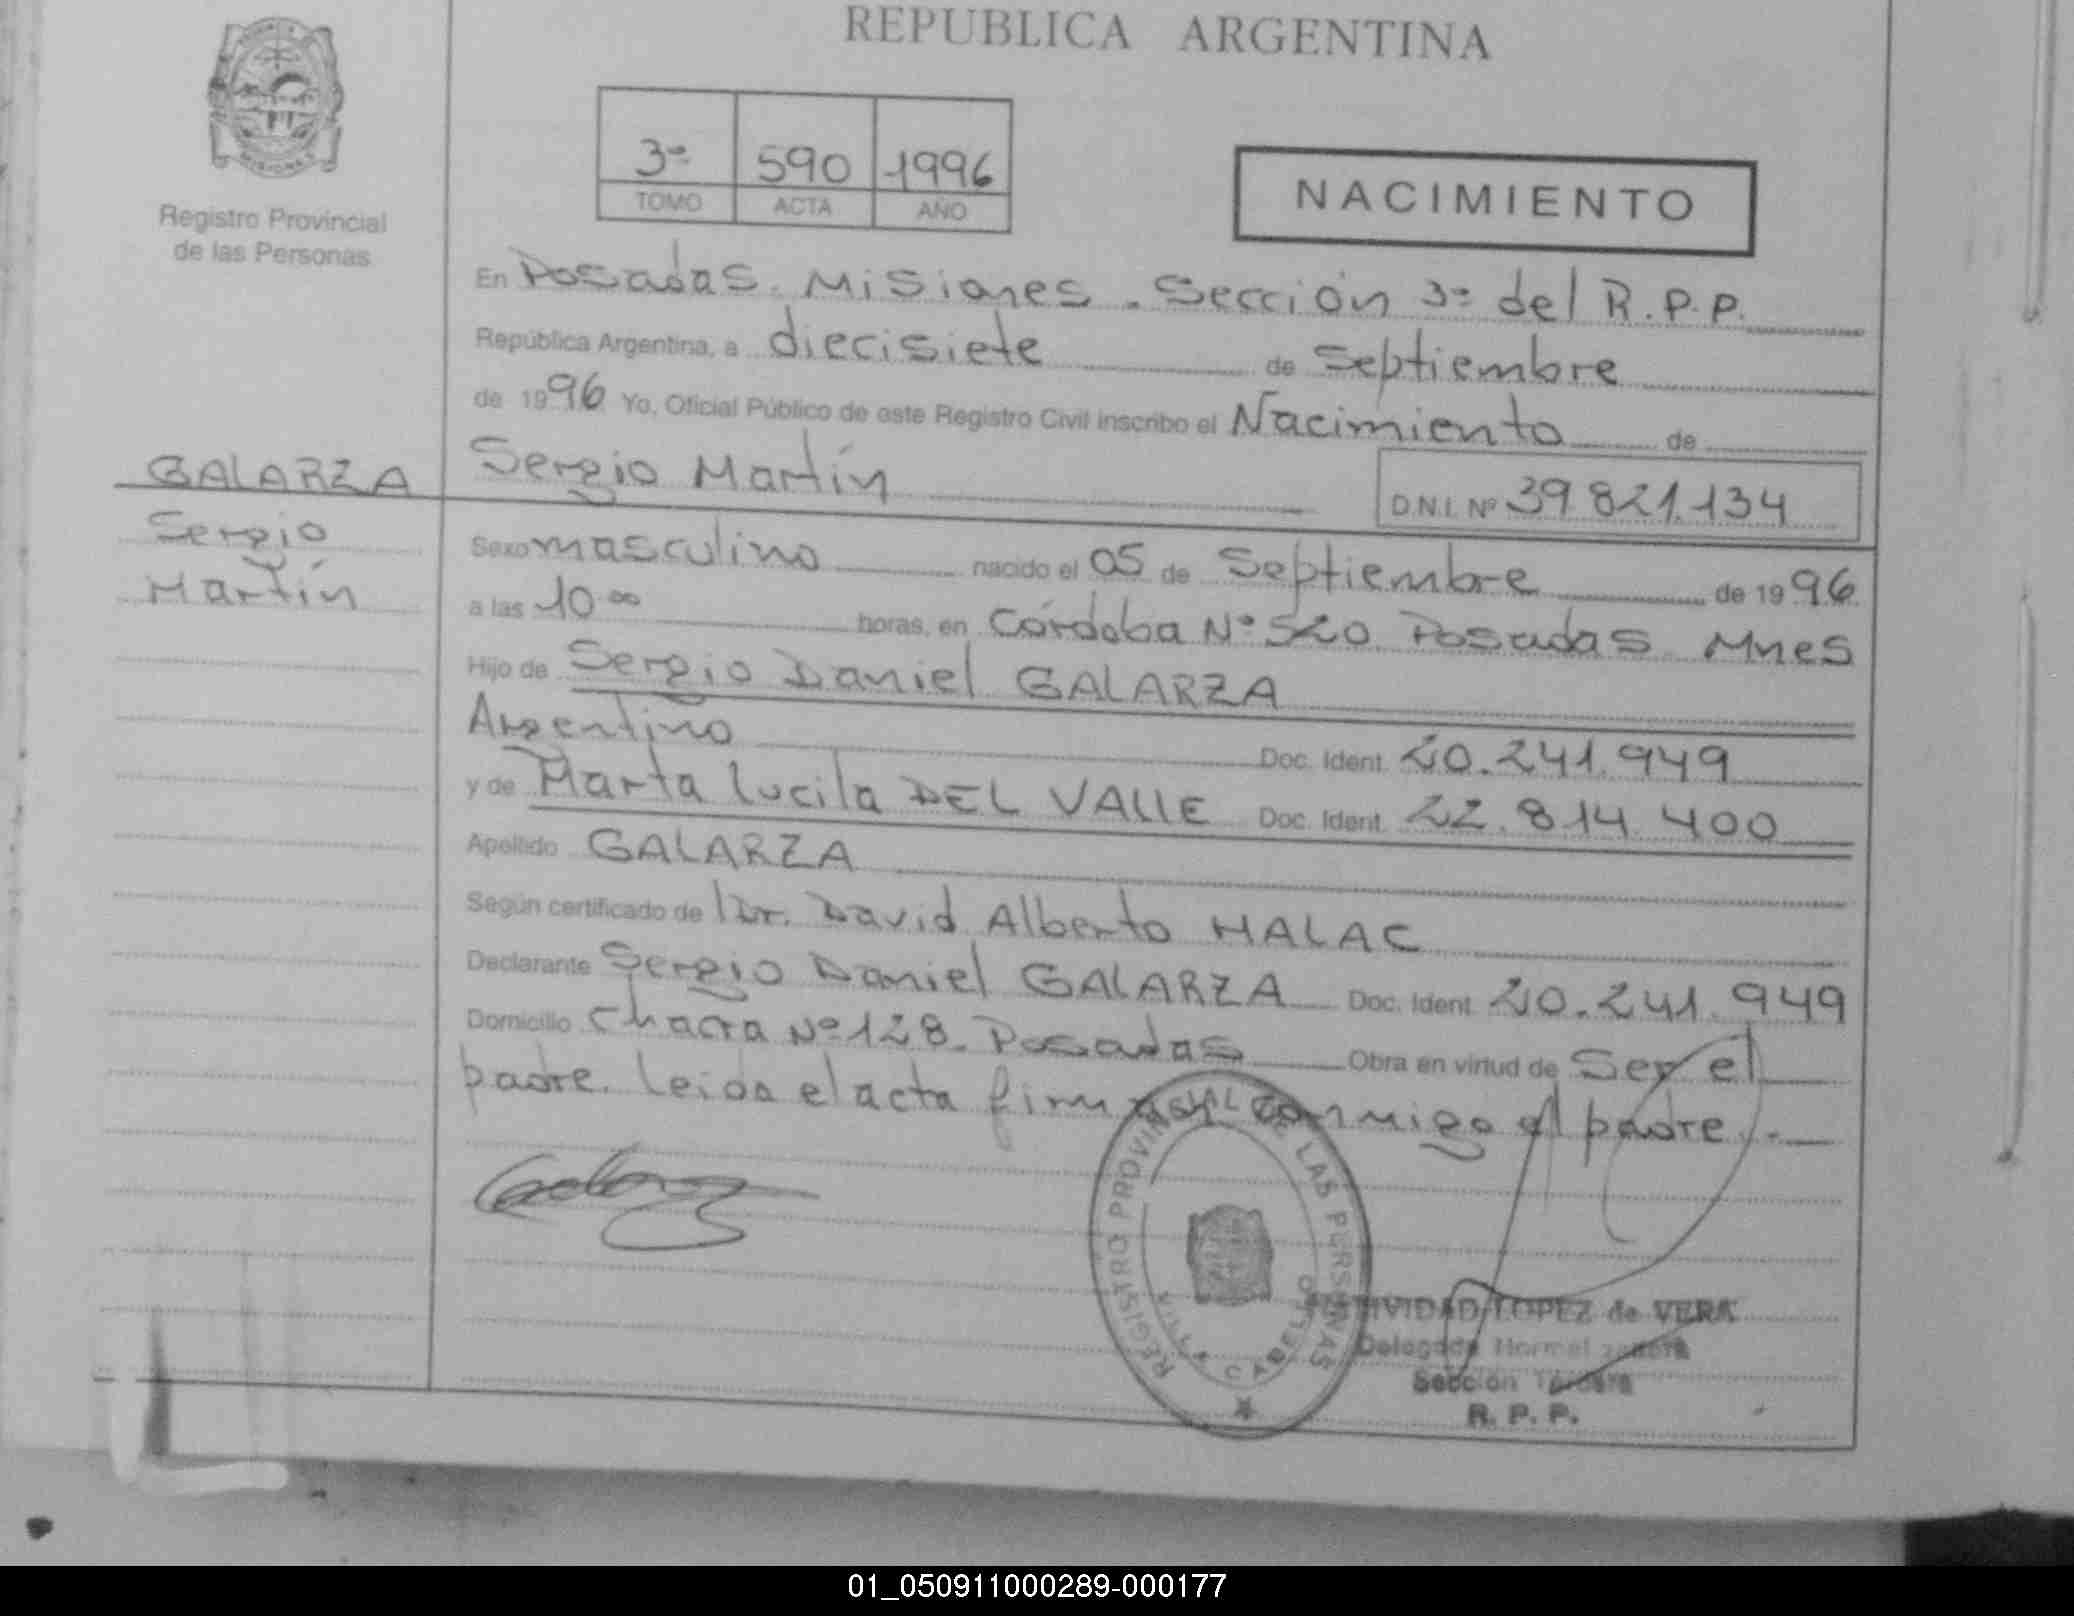 REPUBLICA ARGENTINA
MISIONES
Registro Provincial
de las Personas
3º 590 1996
TOMO ACTA AÑO
NACIMIENTO
En Posadas. Misiones. Sección 3º del R.P.P.
República Argentina, a diecisiete de Septiembre
de 1996 Yo, Oficial Público de este Registro Civil inscribo el Nacimiento de
GALARZA
Sergio
Martín
Sergio Martín D.N.I. Nº 39.821.134
Sexo masculino nacido el 05 de Septiembre de 1996
a las 10.00 horas, en Córdoba Nº 520 Posadas Mnes
Hijo de Sergio Daniel GALARZA
Argentino Doc. Ident. 20.241.949
y de Marta Lucila DEL VALLE Doc. Ident. 22.814.400
Apellido GALARZA
Según certificado de Dr. David Alberto HALAC
Declarante Sergio Daniel GALARZA Doc. Ident. 20.241.949
Domicilio Chacra Nº 128. Posadas Obra en virtud de Ser el
padre. Leida el acta conmigo el padre.
REGISTRO PROVINCIAL DE LAS PERSONAS
VILLA CABELLO
LOPEZ de VERA
Delegada Normal
Sección Tercera
R. P. P.
01_050911000289-000177